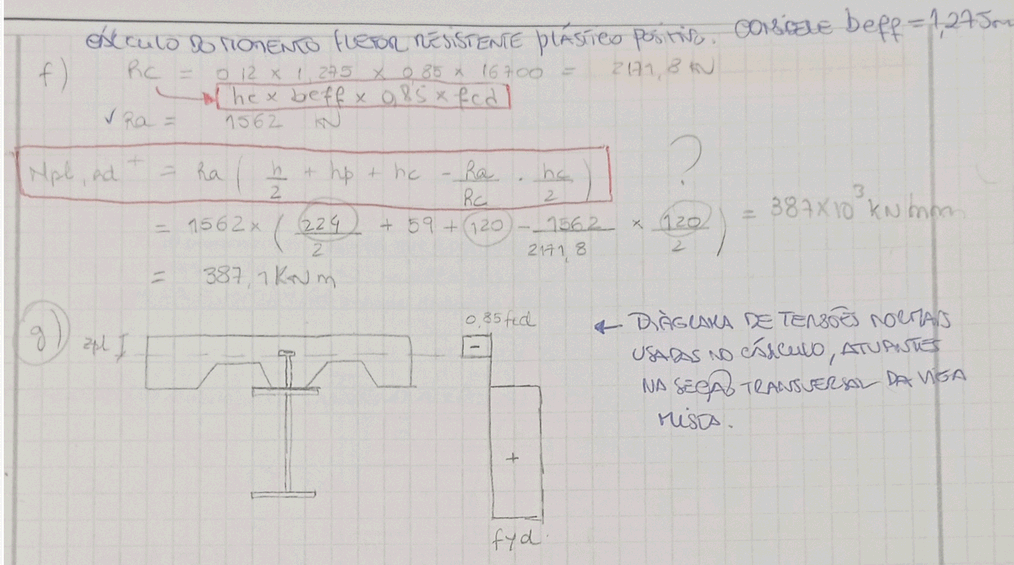 CÁLCULO DO MOMENTO FLETOR RESISTENTE PLÁSTICO POSITIVO. CONSIDERE beff = 1,275m
f) Rc = 0,12 x 1,275 x 0,85 x 16700 = 2171,8 kN
hc x beff x 0,85 x fcd
√ Ra = 1562 kN
Mpl,Rd + = Ra ( h/2 + hp + hc - Ra/Rc . hc/2 ) ?
= 1562 x ( 224/2 + 59 + 120 - 1562/2171,8 x 120/2 ) = 387x10³ kN mm
= 387,1 KN m
g) zpl 0,85fcd ← DIAGRAMA DE TENSÕES NORMAIS
USADAS NO CÁLCULO, ATUANTES
-
NA SEÇÃO TRANSVERSAL DA VIGA
MISTA.
+
fyd